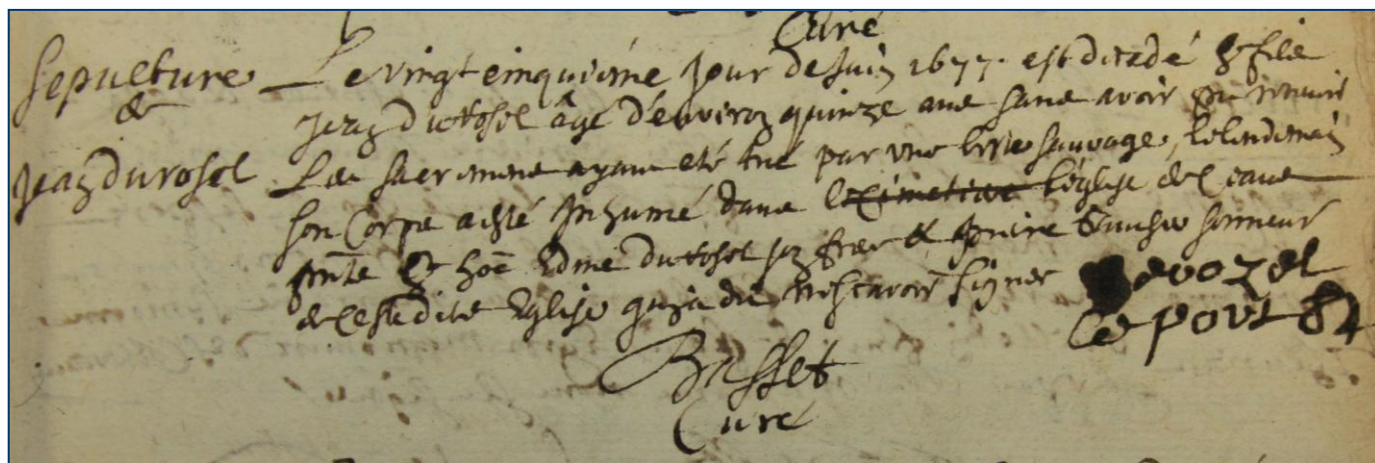 Curé
Sepulture Le vingt cinquiéme Jour de Juin 1677. est decedé h. filz
de Jean Durosel âgé d'environ quinze ans sans avoir pu recevoir
Jean Durosel Les sacremens ayant eté tué par une beste sauvage, le lendemain
son Corps a esté Inhumé dans le Cimetiere l'église de Ceans
pnts hoe Edme Durosel son frere &
de cestedite Eglise qui a dit ne scavoir signer Devozel
Basset
Curé